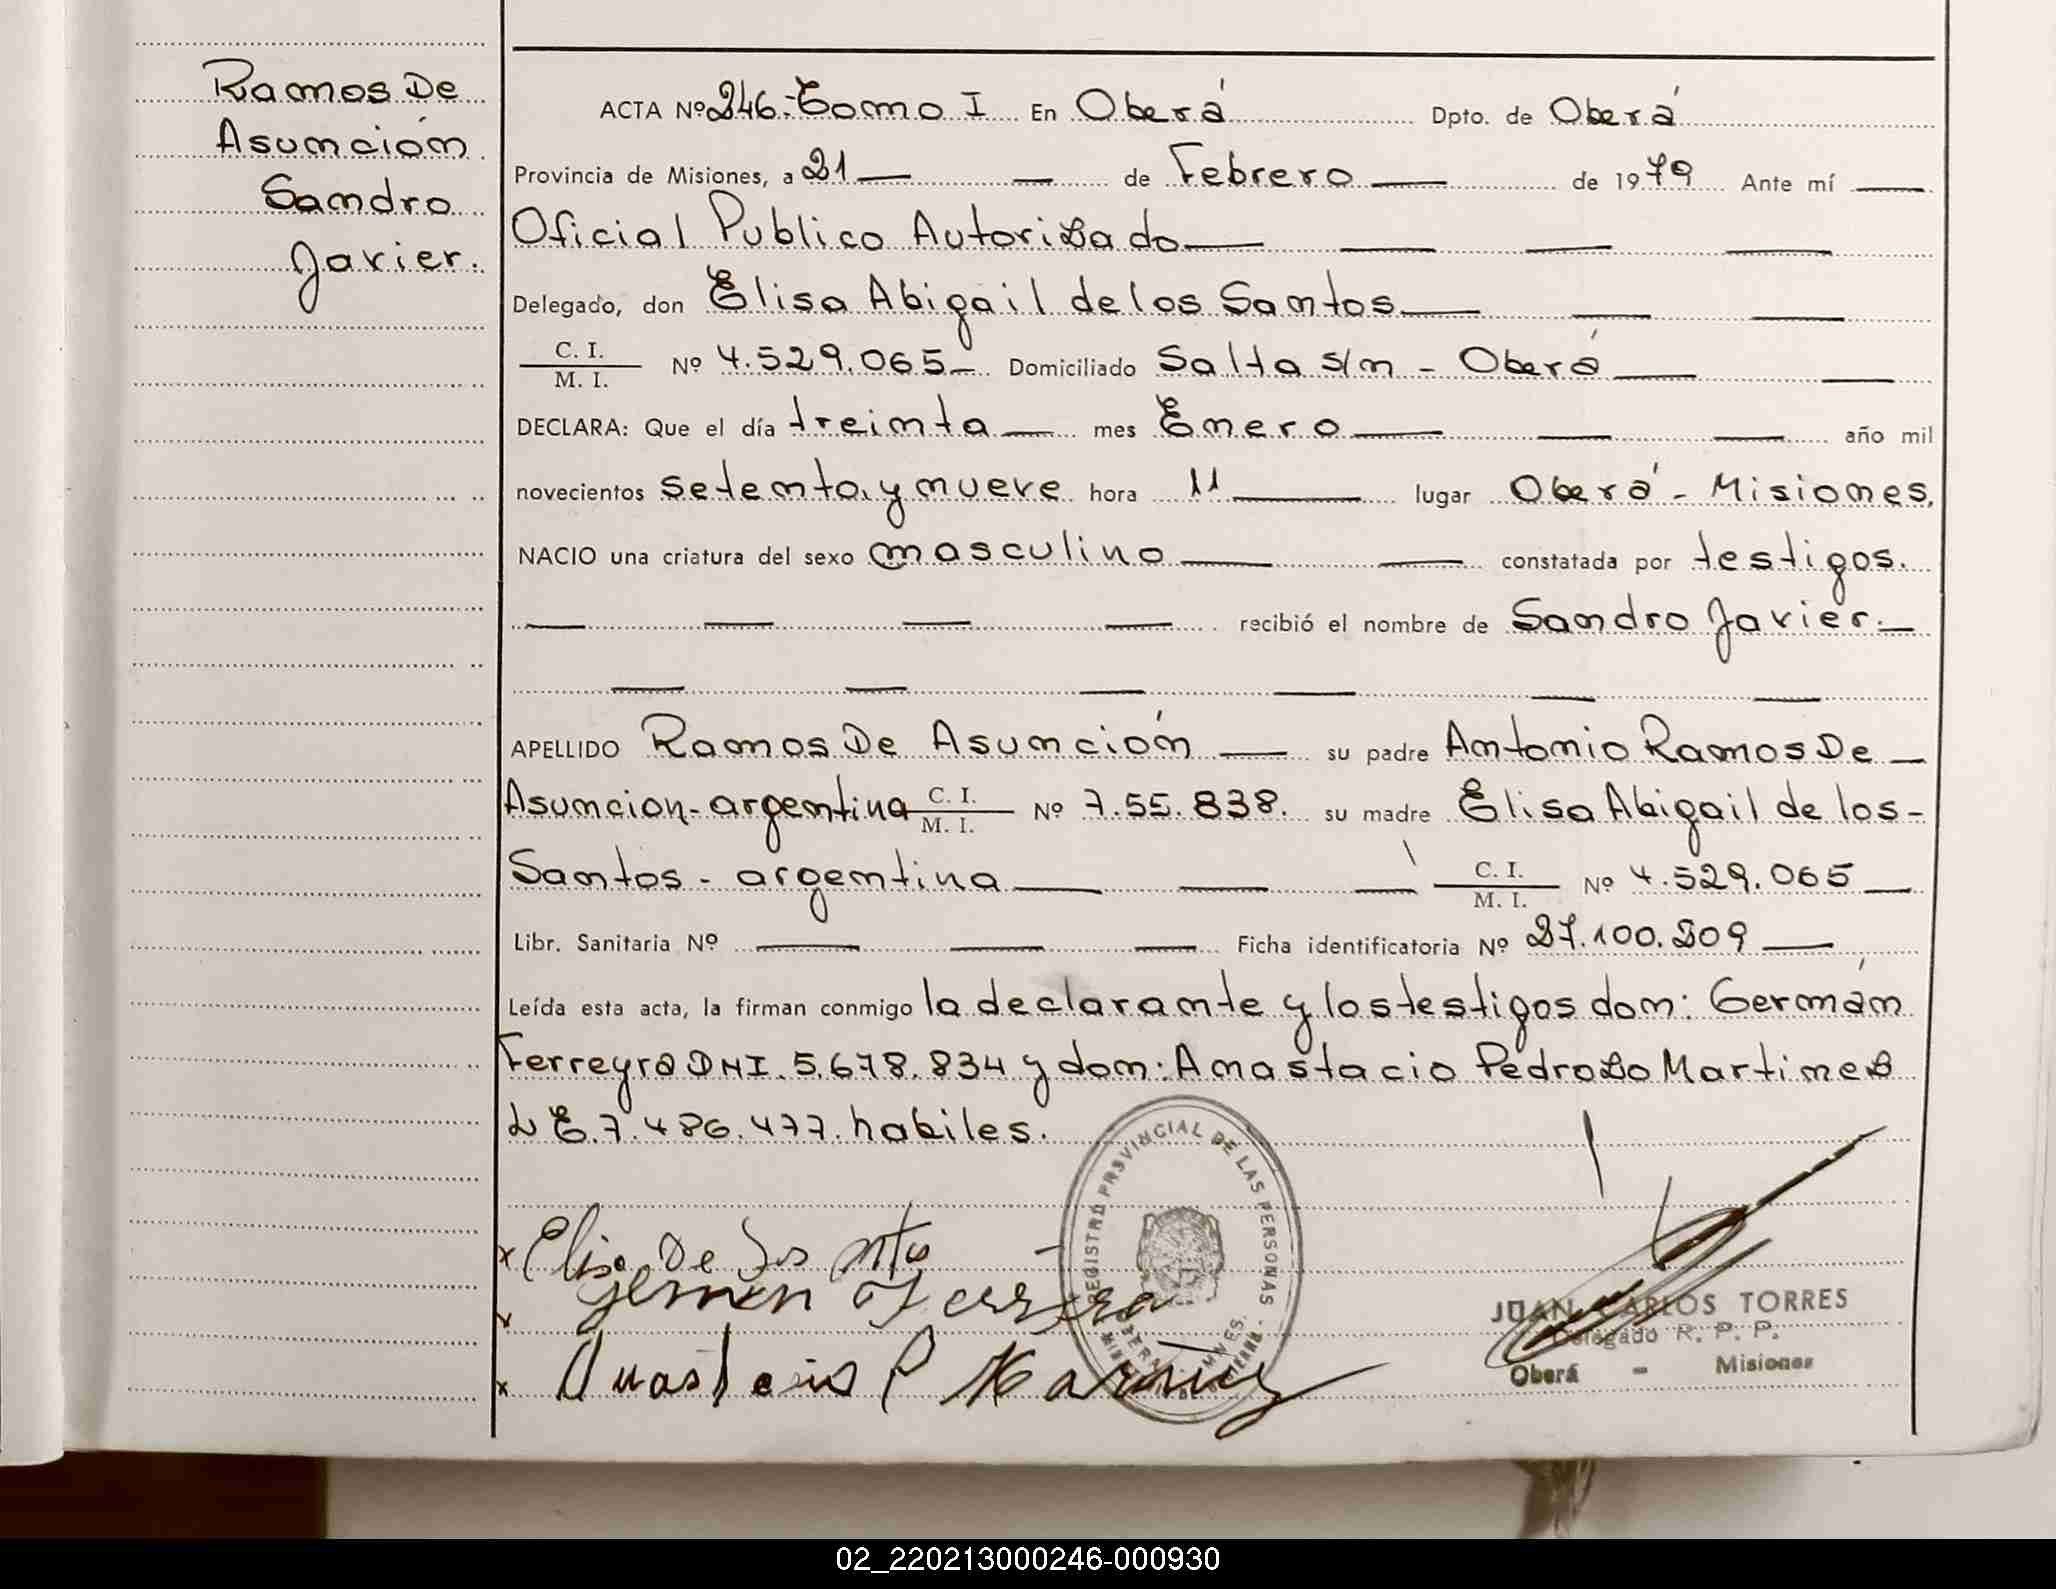 Ramos De
Asunción
Sandro
Javier.
ACTA Nº 246.- Tomo I En Oberá Dpto. de Oberá
Provincia de Misiones, a 21 de Febrero de 1979 Ante mí
Oficial Publico Autorizado
Delegado, don Elisa Abigail de los Santos
C. I.
M. I. Nº 4.529.065 Domiciliado Salta s/n - Oberá
DECLARA: Que el día treinta mes Enero año mil
novecientos setenta y nueve hora 11 lugar Oberá - Misiones.
NACIO una criatura del sexo masculino constatada por testigos.
recibió el nombre de Sandro Javier.
APELLIDO Ramos De Asunción su padre Antonio Ramos De
Asuncion - argentina C. I. M. I. Nº 7.55.838. su madre Elisa Abigail de los
Santos - argentina C. I. M. I. Nº 4.529.065
Libr. Sanitaria Nº Ficha identificatoria Nº 27.100.209
Leída esta acta, la firman conmigo la declarante y los testigos don: Germán
Ferreyra DNI. 5.678.834 y don: Anastacio Pedrozo Martinez
L E. 7.486.477. habiles.
REGISTRO PROVINCIAL DE LAS PERSONAS
x Elisa De los Santos
x German Ferreyra
x Anastacio P Martinez
JUAN CARLOS TORRES
Delegado R. P. P.
Oberá - Misiones
02_220213000246-000930